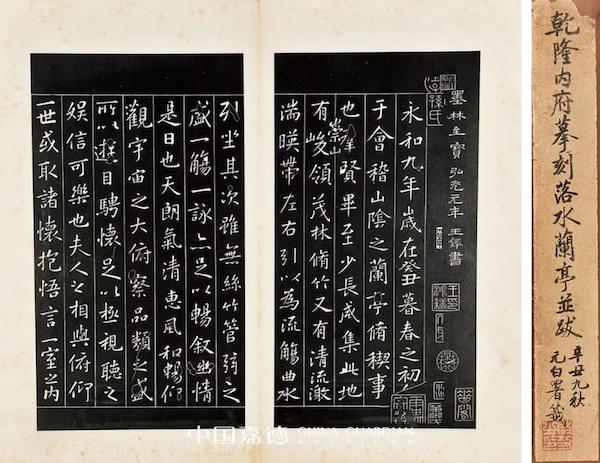 乾隆内府摹刻落水蘭亭並跋
辛丑九秋
元白署簽
墨林至寶 弘光元年 王鐸書
永和九年歲在癸丑暮春之初
于會稽山陰之蘭亭脩稧事
也羣賢畢至少長咸集此地
有崇山峻領茂林脩竹又有清流激
湍暎帶左右引以為流觴曲水
列坐其次雖無絲竹管弦之
盛一觴一詠亦足以暢叙幽情
是日也天朗氣清惠風和暢仰
觀宇宙之大俯察品類之盛
所以遊目騁懷足以極視聽之
娛信可樂也夫人之相與俯仰
一世或取諸懷抱悟言一室之內
中国嘉德 CHINA GUARDIAN
AUCTIONS